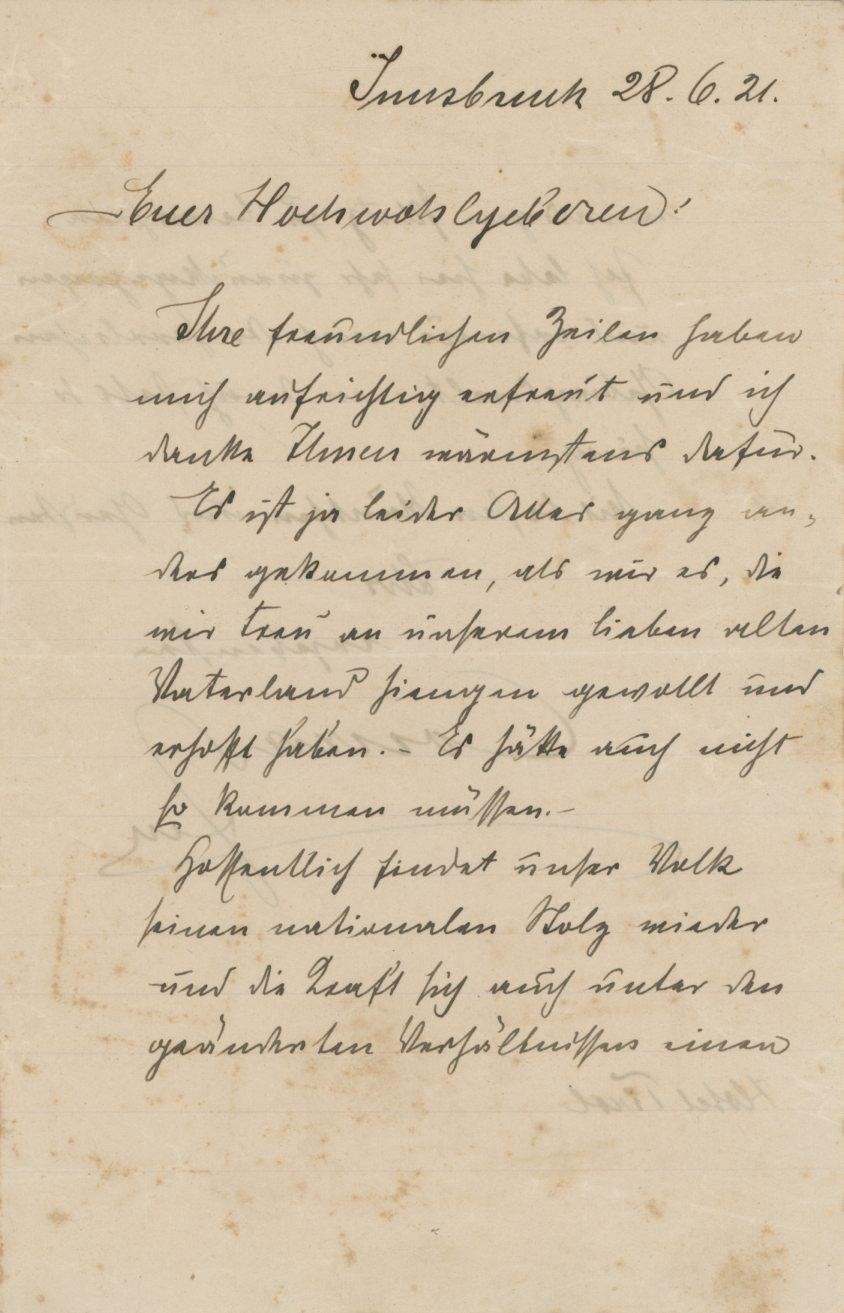 Innsbruck 28. 6. 21.
Euer Hochwohlgeboren!
Ihre freundlichen Zeilen haben
mich aufrichtig erfreut und ich
danke Ihnen wärmstens dafür.
Es ist ja leider Alles ganz an-
ders gekommen, als wir es, die
wir treu an unserem lieben alten
Vaterland hiengen gewollt und
erhofft haben. – Es hätte auch nicht
so kommen müssen. –
Hoffentlich findet unser Volk
seinen nationalen Stolz wieder
und die Kraft sich auch unter den
geänderten Verhältnissen einen